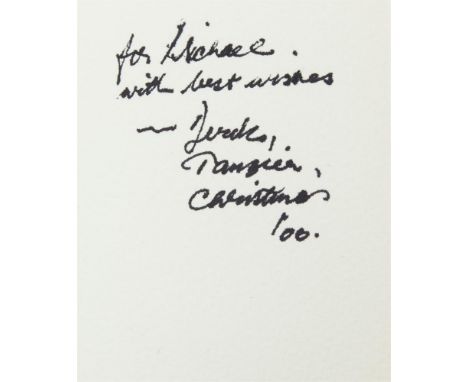 for Michael.
with best wishes
— Derek,
Tangier,
Christmas
'00.